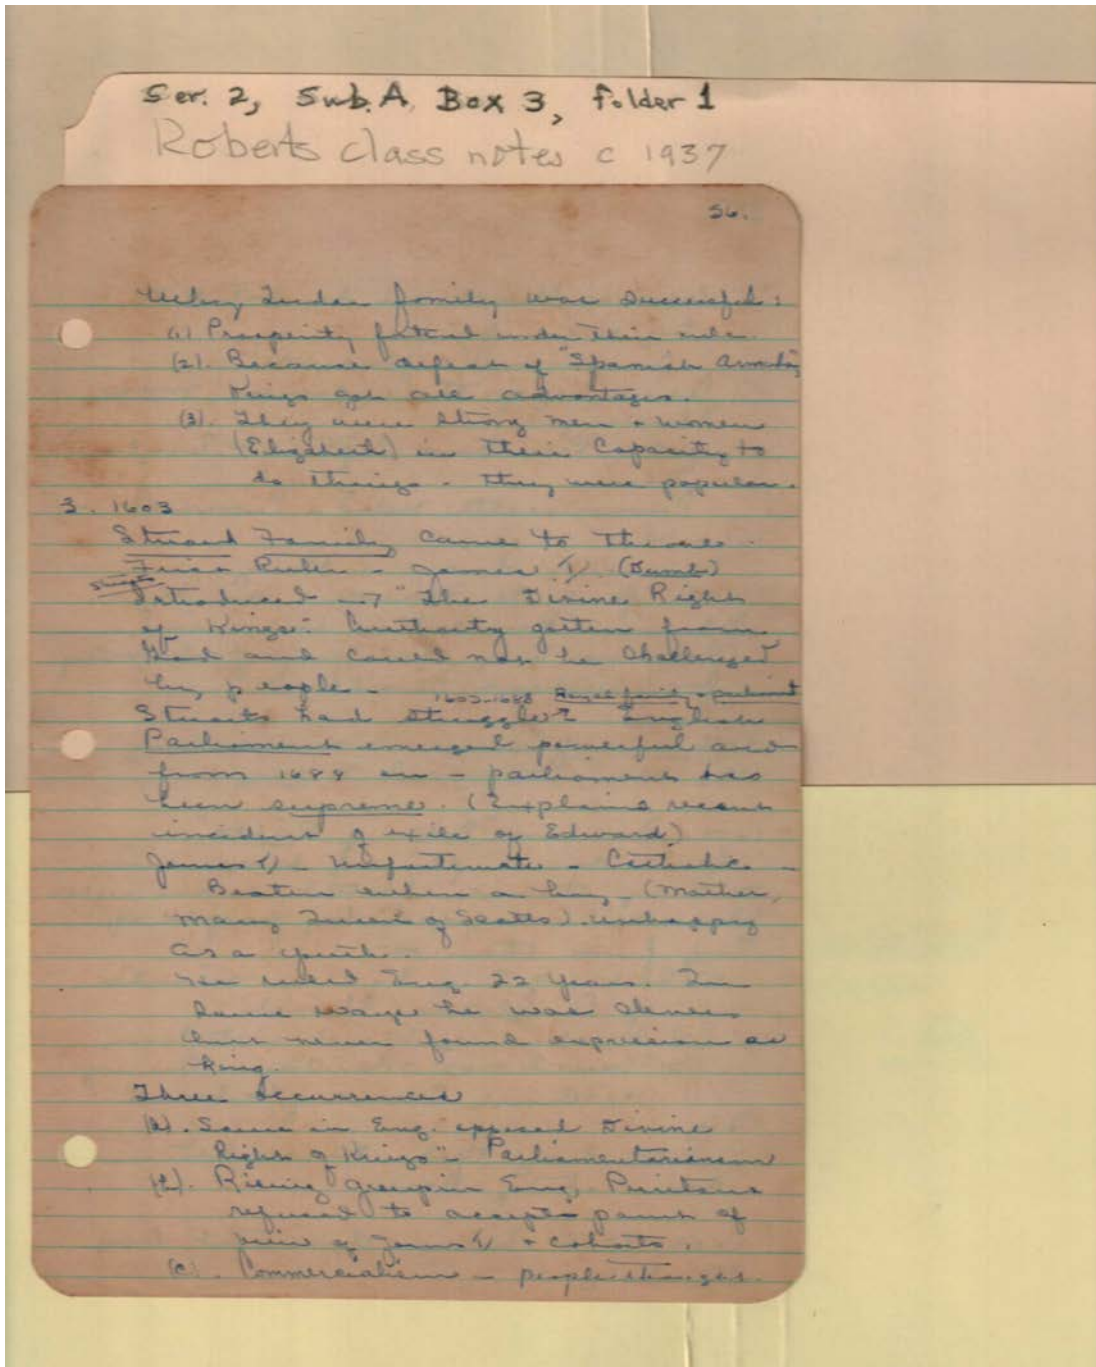 Ser. 2, Sub. A, Box 3, folder 1
Roberts class notes c 1937
56.
Why Tudor family was successful:
(1) Prosperity under their rule.
(2). Because defeat of "Spanish Armada,
Kings got all advantages.
(3). They were strong men + women
(Elizabeth) in their capacity to
do things - they were popular.
3. 1603
Stuard Family came to throne -
First Ruler - James I (Dumb)
Introduced → "The Divine Rights
of Kings": Authority gotten from
God and could not be challenged
by people - 1603-1688 Royal family + parliament
Stuarts had struggle English
Parliament emerged powerful and
from 1688 on - parliament has
been supreme. (Explains recent
incident of exile of Edward)
James I - Unfortunate - Catholic -
Beaten when a boy - (Mother,
Mary Queen of Scotts). unhappy
as a youth.
He ruled Eng. 22 years. In
some ways he was clever
but never found expression as
king.
Three Occurrences
(a). Some in Eng. opposed Divine
Rights of Kings" - Parliamentarianism
(b). Rising group in Eng, Puritans
refused to accept point of
view of James I + cohorts.
(c). Commercialism - people changed.